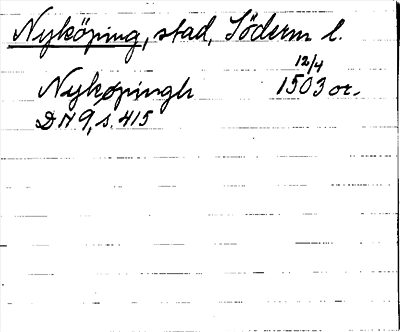 Nyköping, stad, Söderm l.
12/4
Nykøpingh 1503 or.
DN 9, s. 415